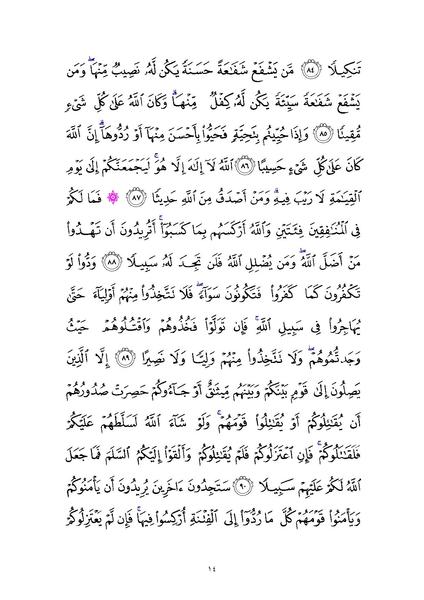 تَنكِيلًا ۝٨٤ مَّن يَشْفَعْ شَفَٰعَةً حَسَنَةً يَكُن لَّهُۥ نَصِيبٌ مِّنْهَا ۖ وَمَن
يَشْفَعْ شَفَٰعَةً سَيِّئَةً يَكُن لَّهُۥ كِفْلٌ مِّنْهَا ۗ وَكَانَ ٱللَّهُ عَلَىٰ كُلِّ شَىْءٍ
مُّقِيتًا ۝٨٥ وَإِذَا حُيِّيتُم بِتَحِيَّةٍ فَحَيُّوا۟ بِأَحْسَنَ مِنْهَآ أَوْ رُدُّوهَآ ۗ إِنَّ ٱللَّهَ
كَانَ عَلَىٰ كُلِّ شَىْءٍ حَسِيبًا ۝٨٦ ٱللَّهُ لَآ إِلَٰهَ إِلَّا هُوَ ۚ لَيَجْمَعَنَّكُمْ إِلَىٰ يَوْمِ
ٱلْقِيَٰمَةِ لَا رَيْبَ فِيهِ ۗ وَمَنْ أَصْدَقُ مِنَ ٱللَّهِ حَدِيثًا ۝٨٧ ۞ فَمَا لَكُمْ
فِى ٱلْمُنَٰفِقِينَ فِئَتَيْنِ وَٱللَّهُ أَرْكَسَهُم بِمَا كَسَبُوٓا۟ ۚ أَتُرِيدُونَ أَن تَهْدُوا۟
مَنْ أَضَلَّ ٱللَّهُ ۖ وَمَن يُضْلِلِ ٱللَّهُ فَلَن تَجِدَ لَهُۥ سَبِيلًا ۝٨٨ وَدُّوا۟ لَوْ
تَكْفُرُونَ كَمَا كَفَرُوا۟ فَتَكُونُونَ سَوَآءً ۖ فَلَا تَتَّخِذُوا۟ مِنْهُمْ أَوْلِيَآءَ حَتَّىٰ
يُهَاجِرُوا۟ فِى سَبِيلِ ٱللَّهِ ۚ فَإِن تَوَلَّوْا۟ فَخُذُوهُمْ وَٱقْتُلُوهُمْ حَيْثُ
وَجَدتُّمُوهُمْ ۖ وَلَا تَتَّخِذُوا۟ مِنْهُمْ وَلِيًّا وَلَا نَصِيرًا ۝٨٩ إِلَّا ٱلَّذِينَ
يَصِلُونَ إِلَىٰ قَوْمٍۭ بَيْنَكُمْ وَبَيْنَهُم مِّيثَٰقٌ أَوْ جَآءُوكُمْ حَصِرَتْ صُدُورُهُمْ
أَن يُقَٰتِلُوكُمْ أَوْ يُقَٰتِلُوا۟ قَوْمَهُمْ ۚ وَلَوْ شَآءَ ٱللَّهُ لَسَلَّطَهُمْ عَلَيْكُمْ
فَلَقَٰتَلُوكُمْ ۚ فَإِنِ ٱعْتَزَلُوكُمْ فَلَمْ يُقَٰتِلُوكُمْ وَأَلْقَوْا۟ إِلَيْكُمُ ٱلسَّلَمَ فَمَا جَعَلَ
ٱللَّهُ لَكُمْ عَلَيْهِمْ سَبِيلًا ۝٩٠ سَتَجِدُونَ ءَاخَرِينَ يُرِيدُونَ أَن يَأْمَنُوكُمْ
وَيَأْمَنُوا۟ قَوْمَهُمْ كُلَّ مَا رُدُّوٓا۟ إِلَى ٱلْفِتْنَةِ أُرْكِسُوا۟ فِيهَا ۚ فَإِن لَّمْ يَعْتَزِلُوكُمْ
١٤